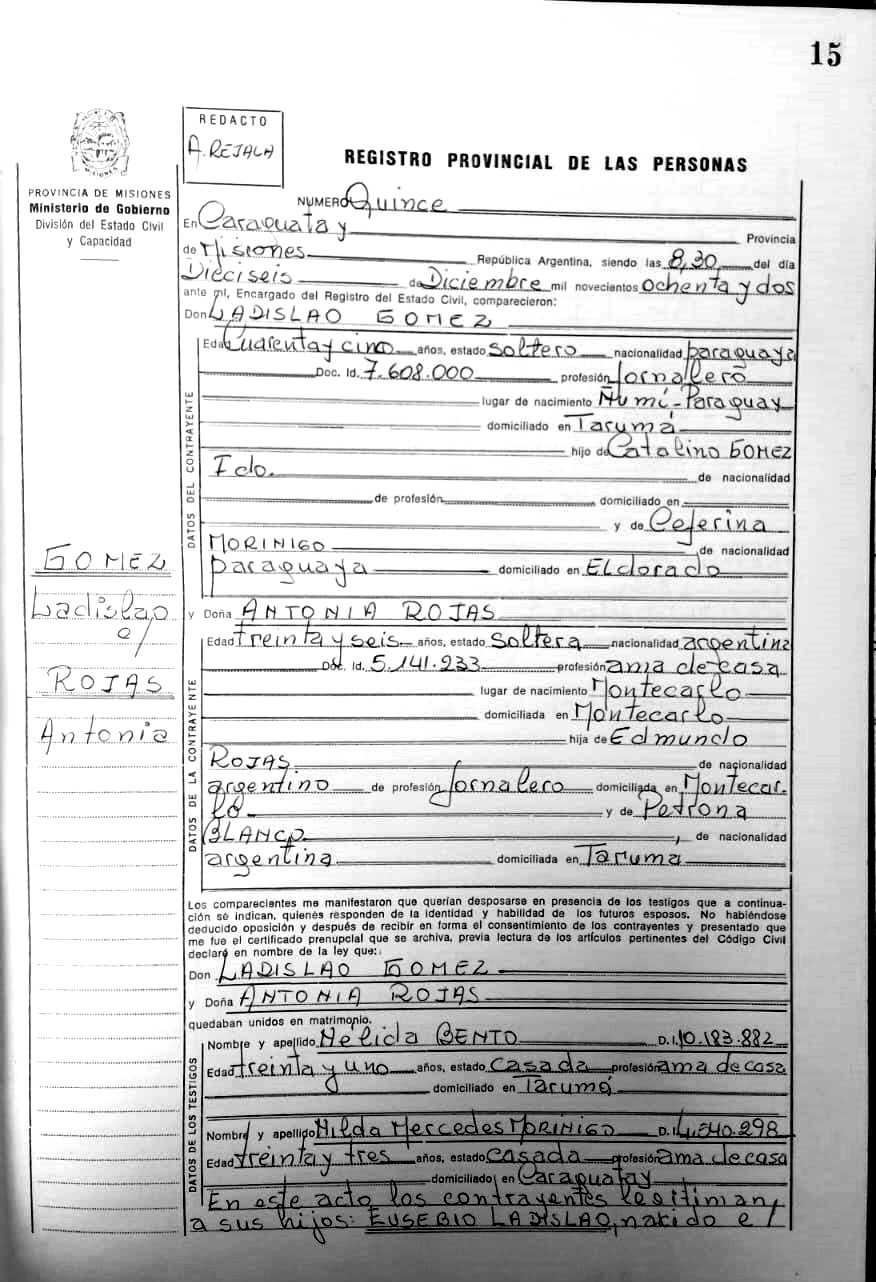 15
REDACTO
A. REJALA
REGISTRO PROVINCIAL DE LAS PERSONAS
MISIONES
PROVINCIA DE MISIONES
Ministerio de Gobierno
División del Estado Civil
y Capacidad
NUMERO Quince
En Caraguatay Provincia
de Misiones República Argentina, siendo las 8,30 del día
Dieciseis de Diciembre mil novecientos ochenta y dos
ante mi, Encargado del Registro del Estado Civil, comparecieron:
Don LADISLAO GOMEZ
DATOS DEL CONTRAYENTE
Edad Cuarenta y cinco años, estado soltero nacionalidad paraguaya
Doc. Id. 7.608.000 profesión Jornalero
lugar de nacimiento Ñumí-Paraguay
domiciliado en Tarumá
hijo de Catalino GOMEZ
Fdo. de nacionalidad
de profesión domiciliado en
y de Ceferina
MORINIGO de nacionalidad
paraguaya domiciliado en Eldorado
GOMEZ
Ladislao
e/
ROJAS
Antonia
y Doña ANTONIA ROJAS
DATOS DE LA CONTRAYENTE
Edad treinta y seis años, estado Soltera nacionalidad argentina
Doc. Id. 5.141.233 profesión ama de casa
lugar de nacimiento Montecarlo
domiciliada en Montecarlo
hija de Edmundo
ROJAS de nacionalidad
argentino de profesión Jornalero domiciliada en Montecar-
lo y de Petrona
BLANCO, de nacionalidad
argentina domiciliada en Taruma
Los comparecientes me manifestaron que querían desposarse en presencia de los testigos que a continua-
ción se indican, quienes responden de la identidad y habilidad de los futuros esposos. No habiéndose
deducido oposición y después de recibir en forma el consentimiento de los contrayentes y presentado que
me fue el certificado prenupcial que se archiva, previa lectura de los artículos pertinentes del Código Civil
declaré en nombre de la ley que:
Don LADISLAO GOMEZ
y Doña ANTONIA ROJAS
quedaban unidos en matrimonio.
DATOS DE LOS TESTIGOS
Nombre y apellido Nelida BENTO D.I. 10.183.882
Edad treinta y uno años, estado casada profesión ama de casa
domiciliado en Tarumá
Nombre y apellido Hilda Mercedes MORINIGO D.I. 4.540.298
Edad treinta y tres años, estado casada profesión ama de casa
domiciliado en Caraguatay
En este acto los contrayentes legitiman
a sus hijos: EUSEBIO LADISLAO, nacido e/